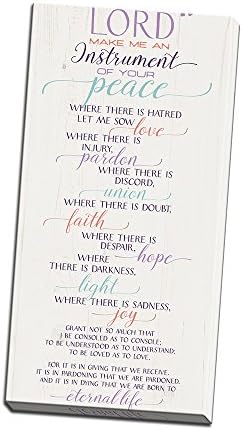 LORD
MAKE ME AN
Instrument
OF YOUR
peace
WHERE THERE IS HATRED
LET ME SOW love
WHERE THERE IS
INJURY,
pardon
WHERE THERE IS
DISCORD,
union
WHERE THERE IS DOUBT,
faith
WHERE THERE IS
DESPAIR, hope
WHERE
THERE IS DARKNESS,
light
WHERE THERE IS SADNESS,
joy
GRANT NOT SO MUCH THAT
I BE CONSOLED AS TO CONSOLE;
TO BE UNDERSTOOD AS TO UNDERSTAND;
TO BE LOVED AS TO LOVE.
FOR IT IS IN GIVING THAT WE RECEIVE,
IT IS IN PARDONING THAT WE ARE PARDONED,
AND IT IS IN DYING THAT WE ARE BORN TO
eternal life